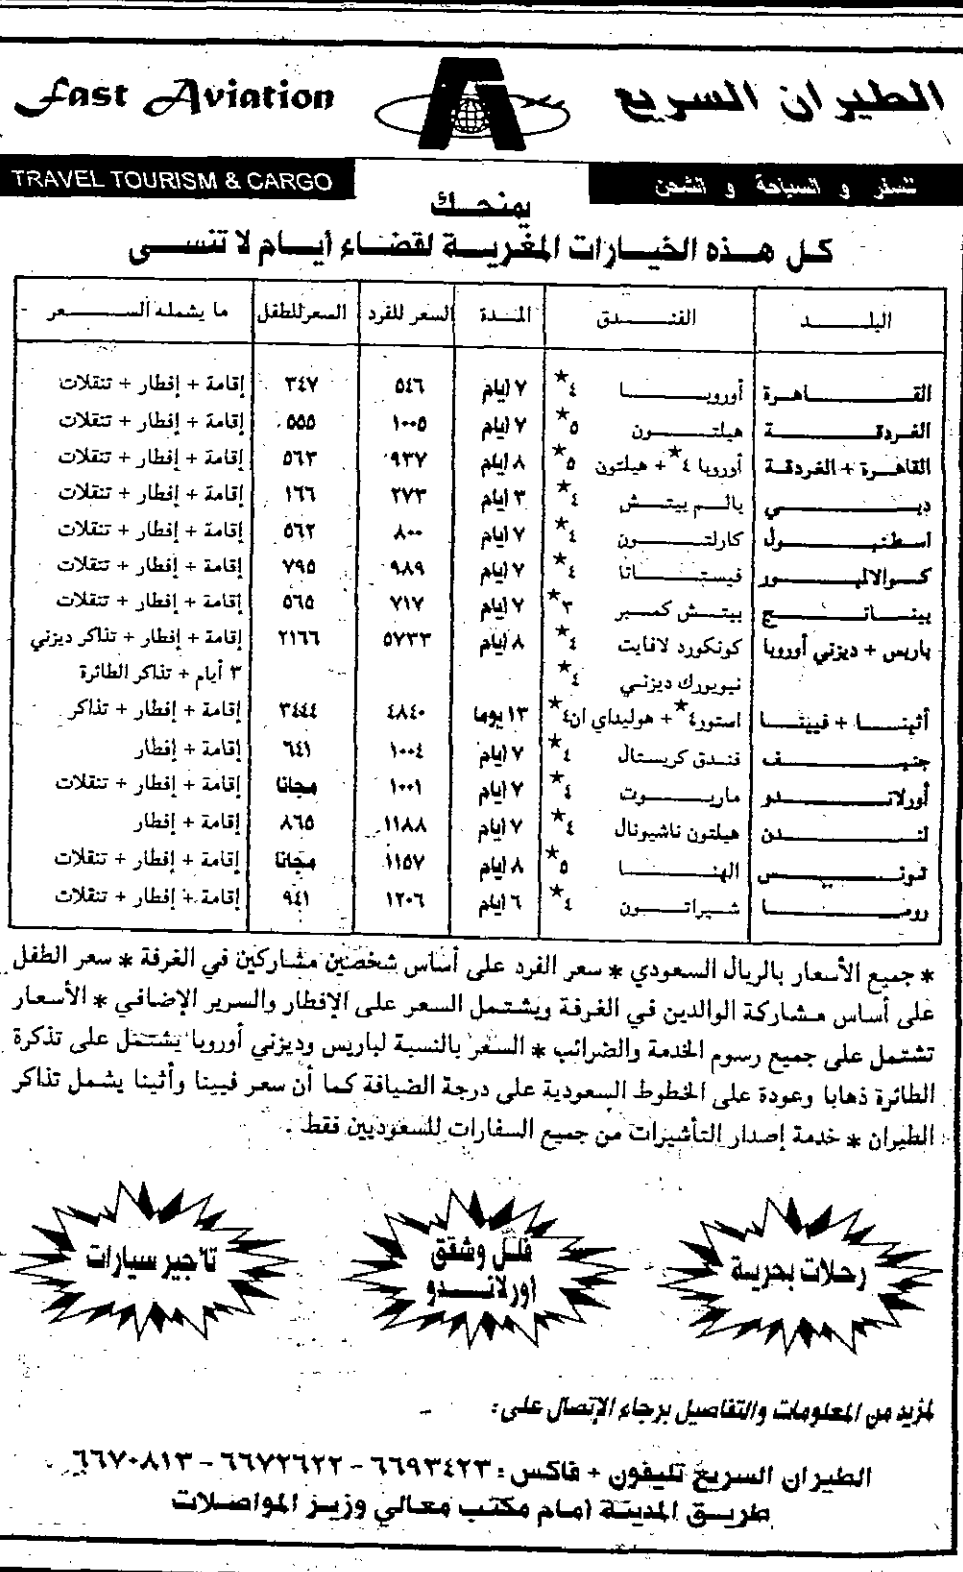 الطيران السريع Fast Aviation
للسفر و السياحة و الشحن TRAVEL TOURISM & CARGO
يمنحك
كل هذه الخيارات المغرية لقضاء أيام لا تنسى
البلد الفندق المدة السعر للفرد السعر للطفل ما يشمله السعر
القاهرة أوروبا ٤* ٧ أيام ٥٤٦ ٣٤٧ إقامة + إفطار + تنقلات
الغردقة هيلتون ٥* ٧ أيام ١٠٠٥ ٥٥٥ إقامة + إفطار + تنقلات
القاهرة + الغردقة أوروبا ٤* + هيلتون ٥* ٨ أيام ٩٣٧ ٥٦٣ إقامة + إفطار + تنقلات
دبي بالم بيتش ٤* ٣ أيام ٢٧٣ ١٦٦ إقامة + إفطار + تنقلات
اسطنبول كارلتون ٤* ٧ أيام ٨٠٠ ٥٦٢ إقامة + إفطار + تنقلات
كوالالمبور فيستانا ٤* ٧ أيام ٩٨٩ ٧٩٥ إقامة + إفطار + تنقلات
بينانج بيتش كمبر ٣* ٧ أيام ٧١٧ ٥٦٥ إقامة + إفطار + تنقلات
باريس + ديزني أوروبا كونكورد لافايت ٤* ٨ أيام ٥٧٣٣ ٢١٦٦ إقامة + إفطار + تذاكر ديزني
نيويورك ديزني ٤* ٣ أيام + تذاكر الطائرة
أثينا + فيينا استور٤* + هوليداي ان٤* ١٣ يوما ٤٨٤٠ ٣٤٤٤ إقامة + إفطار + تذاكر
جنيف فندق كريستال ٤* ٧ أيام ١٠٠٤ ٦٤١ إقامة + إفطار
أورلاندو ماريوت ٤* ٧ أيام ١٠٠١ مجانا إقامة + إفطار + تنقلات
لندن هيلتون ناشيونال ٤* ٧ أيام ١١٨٨ ٨٦٥ إقامة + إفطار
تونس الهنا ٥* ٨ أيام ١١٥٧ مجانا إقامة + إفطار + تنقلات
روما شيراتون ٤* ٦ أيام ١٢٠٦ ٩٤١ إقامة + إفطار + تنقلات
* جميع الأسعار بالريال السعودي * سعر الفرد على أساس شخصين مشاركين في الغرفة * سعر الطفل
على أساس مشاركة الوالدين في الغرفة ويشتمل السعر على الإفطار والسرير الإضافي * الأسعار
تشتمل على جميع رسوم الخدمة والضرائب * السعر بالنسبة لباريس وديزني أوروبا يشتمل على تذكرة
الطائرة ذهابا وعودة على الخطوط السعودية على درجة الضيافة كما أن سعر فيينا وأثينا يشمل تذاكر
الطيران * خدمة إصدار التأشيرات من جميع السفارات للسعوديين فقط .
رحلات بحرية
فلل وشقق
اورلاندو
تأجير سيارات
لمزيد من المعلومات والتفاصيل برجاء الإتصال على :
الطيران السريع تليفون + فاكس : ٦٦٩٣٤٢٣ - ٦٦٧٢٦٢٢ - ٦٦٧٠٨١٣
طريق المدينة أمام مكتب معالي وزير المواصلات